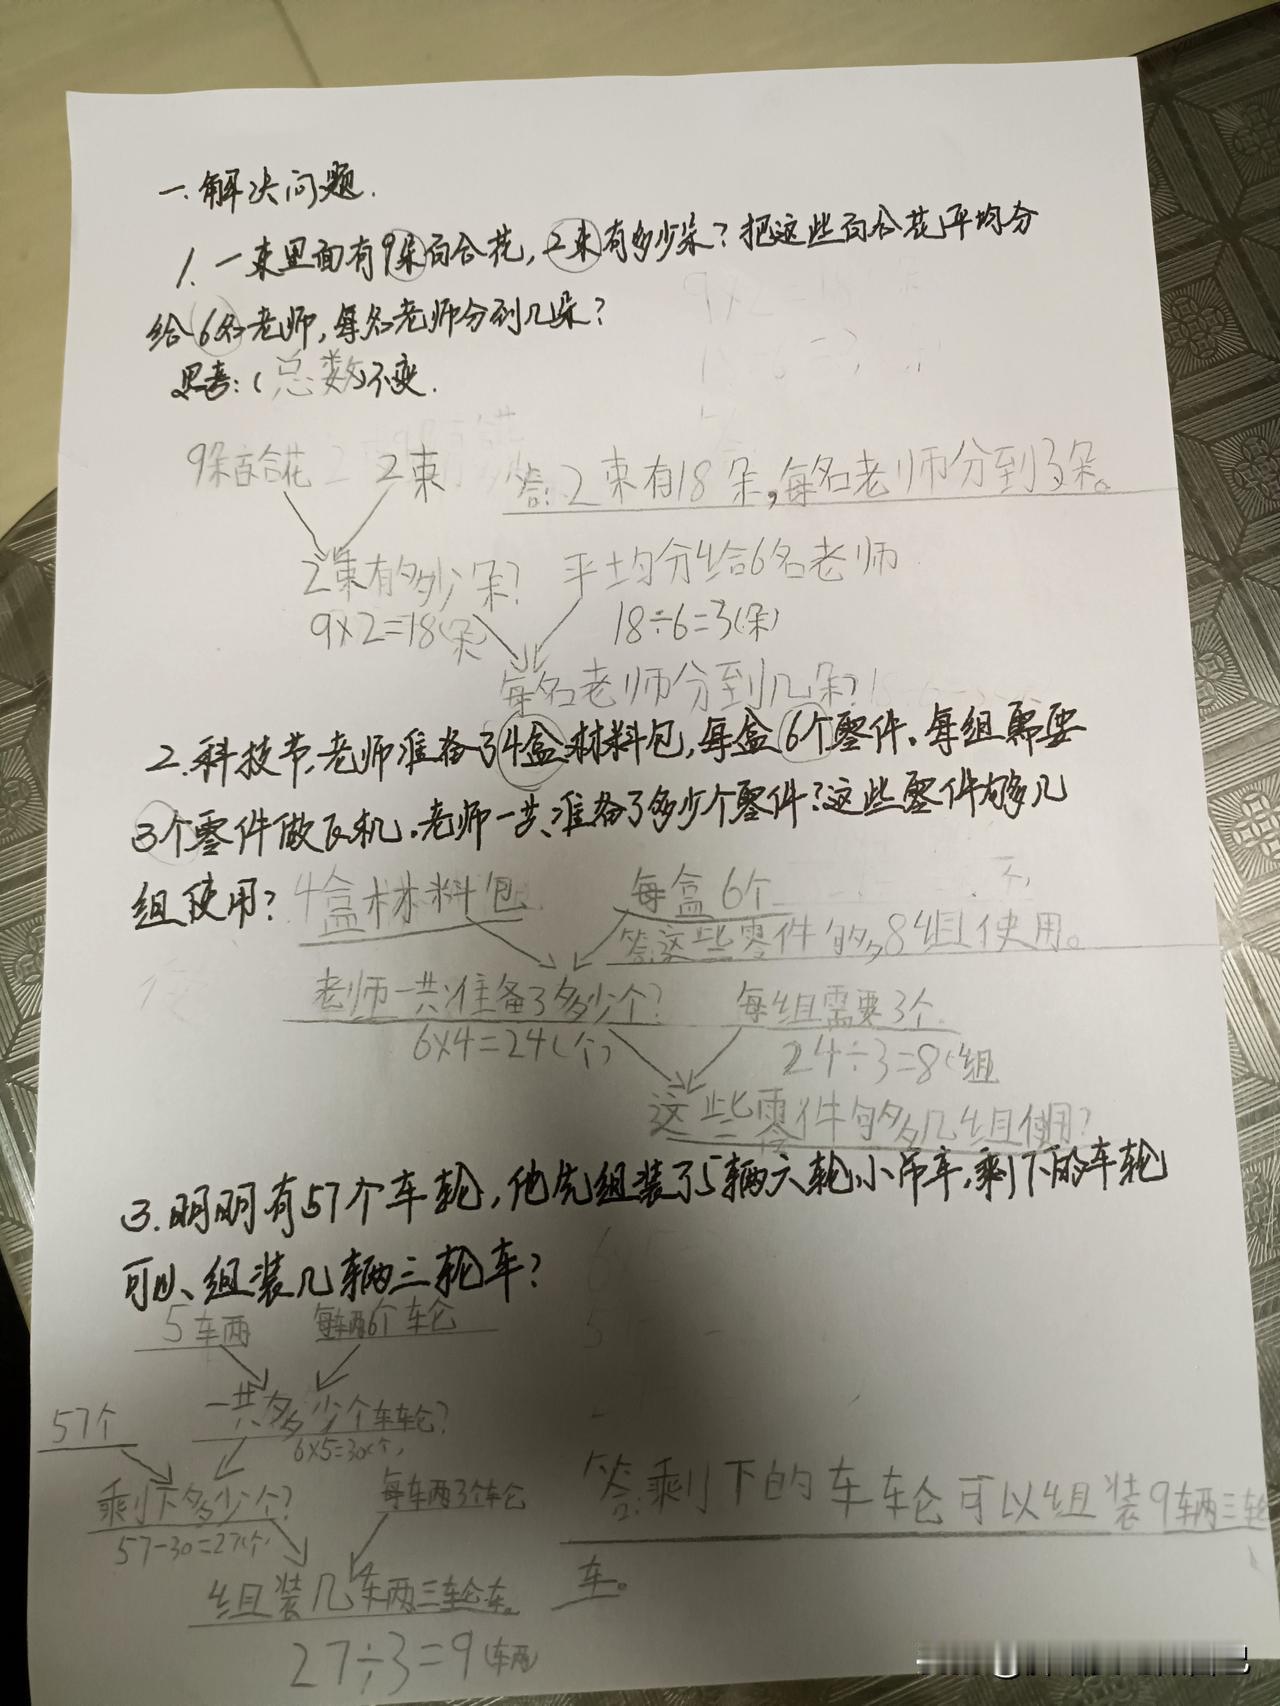 一.解决问题.
1.一束里面有9朵百合花,2束有多少朵?把这些百合花平均分
给6名老师,每名老师分到几朵?
思考:(总数)不变.
9朵百合花 2束
答:2束有18朵,每名老师分到3朵。
2束有多少朵? 平均分给6名老师
9×2=18(朵) 18÷6=3(朵)
每名老师分到几朵?
2.科技节,老师准备了4盒材料包,每盒6个零件.每组需要
3个零件做飞机.老师一共准备了多少个零件?这些零件够几
组使用?
4盒材料包 每盒6个
答:这些零件够8组使用。
老师一共准备了多少个? 每组需要3个
6×4=24(个) 24÷3=8(组
这些零件够几组使用?
3.明明有57个车轮,他先组装了5辆六轮小吊车,剩下的车轮
可以组装几辆三轮车?
5辆 每辆6个车轮
57个 一共多少个车轮?
6×5=30(个)
剩下多少个? 每辆3个车轮
57-30=27(个)
答:剩下的车轮可以组装9辆三轮
车。
组装几辆三轮车。
27÷3=9(辆)